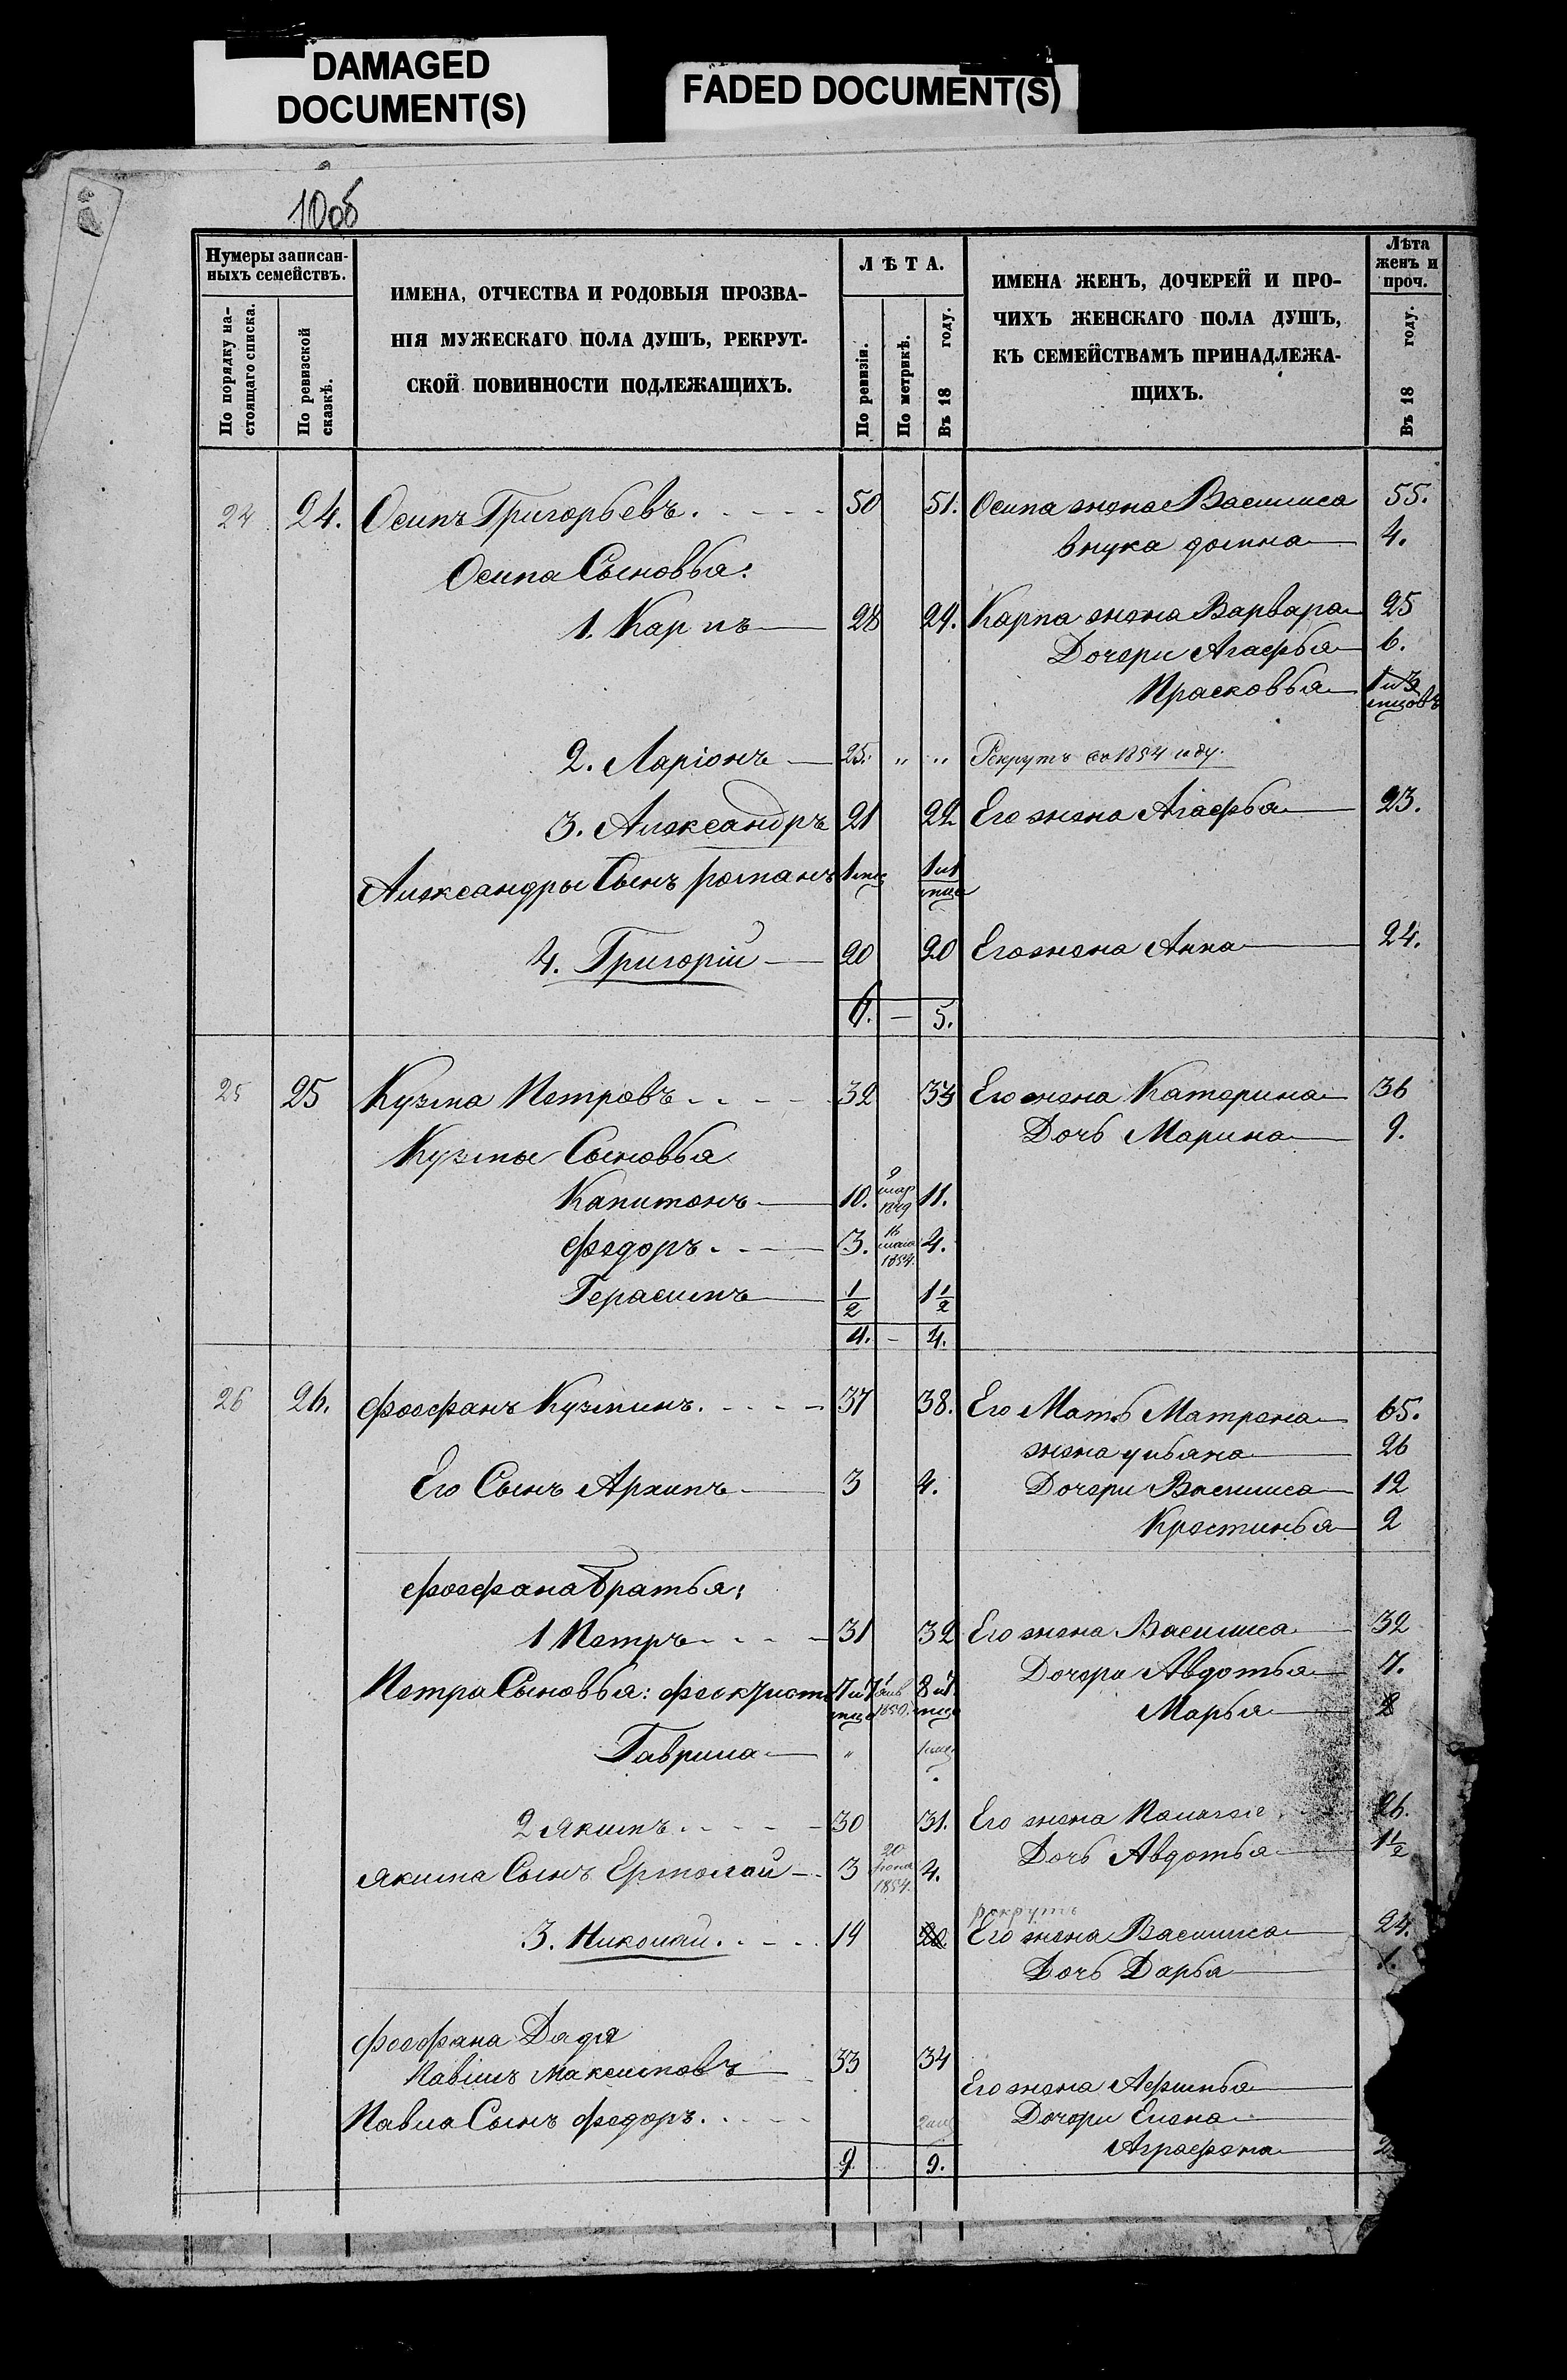 DAMAGED
DOCUMENT(S)
FADED DOCUMENT(S)
10об
Нумеры записан-
ныхъ семействъ.
По порядку на-
стоящаго списка.
По ревизской
сказкѣ.
ИМЕНА, ОТЧЕСТВА И РОДОВЫЯ ПРОЗВА-
НІЯ МУЖЕСКАГО ПОЛА ДУШЪ, РЕКРУТ-
СКОЙ ПОВИННОСТИ ПОДЛЕЖАЩИХЪ.
ЛѢТА.
По ревизіи.
По метрикѣ.
Въ 18 году.
ИМЕНА ЖЕНЪ, ДОЧЕРЕЙ И ПРО-
ЧИХЪ ЖЕНСКАГО ПОЛА ДУШЪ,
КЪ СЕМЕЙСТВАМЪ ПРИНАДЛЕЖА-
ЩИХЪ.
Лѣта
женъ и
проч.
Въ 18 году.
24 24. Осипъ Григорьевъ. 50 51. Осипа жена Василиса 55.
внука домна 4.
Осипа Сыновья:
1. Карпъ 28 29. Карпа жена Варвара 25
Дочери Агафья 6.
Прасковья 1 и 3
мцовъ
2. Ларіонъ 25. " " Рекрутъ въ 1854 году.
3. Александръ 21 22 Его жена Агафья 23.
Александры Сынъ романъ 1 мца 1 и 1
мца
4. Григорій 20 20 Его жена Анна 24.
6. — 5.
25 25 Кузма Петровъ 32 33 Его жена Катерина 36
Дочь Марина 9.
Кузмы Сыновья
Капитонъ 10. 9
мар
1849 11.
Федоръ 3. 16
маія
1854. 4.
Герасимъ 1/2 1 1/2
4. — 4.
26 26. Феофанъ Кузминъ. 37 38. Его Мать Матрена 65.
жена ульяна 26
Его Сынъ Архипъ 3 4. Дочери Василиса 12
Крестинья 2
Феофана Братья:
1 Петръ 31 32 Его жена Василиса 32
Дочери Авдотья 7.
Петра Сыновья: Феоктистъ 7 и 7
мца 1850. 8 и 7
мца
Марья
Гаврила " 1 мца
2 якимъ 30 31. Его жена 26.
Дочь Авдотья 1 1/2
якима Сынъ Ермолай 3 20
1854. 4.
рекрутъ
3. Николай 19 20 Его жена Василиса 24.
Дочь Дарья 1.
Феофана Дядя
Павилъ Максимовъ 33 34
Его жена Афимья
Павла Сынъ Федоръ. Дочери Елена
Аграфена 2
9. 9.